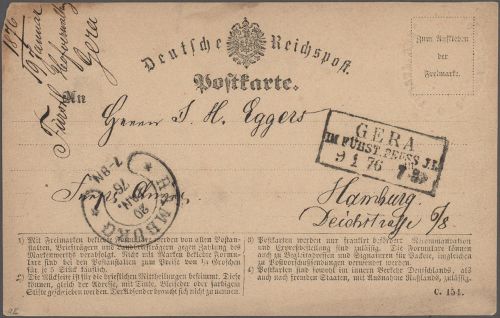 1876
19 Januar
Gera
Deutsche Reichspost.
Postkarte.
Zum Aufkleben
der
Freimarke.
An
Herrn J. H. Eggers
GERA
IM FÜRST. REUSS J. L.
76
HAMBURG
20
76
Hamburg
Deichstrasse
1) Mit Freimarken beklebte Formulare werden von allen Postanstalten, Briefträgern und Landbriefträgern gegen Zahlung des Markenwerths verabfolgt. Nicht mit Marken beklebte Formulare sind bei den Postanstalten zum Preise von ½ Groschen für je 5 Stück käuflich.
2) Die Rückseite ist für die brieflichen Mittheilungen bestimmt. Diese können, gleich der Adresse, mit Tinte, Bleifeder oder farbigem Stifte geschrieben werden. Der Absender braucht sich nicht zu nennen.
3) Postkarten werden nur frankirt befördert. Recommandation und Expreßbestellung sind zulässig. Die Formulare können auch zu Begleitadressen und Signaturen für Packete, imgleichen zu Postvorschußsendungen verwendet werden.
4) Postkarten sind sowohl im innern Verkehr Deutschlands, als auch nach fremden Staaten, mit Ausnahme Rußlands, zulässig.
C. 154.